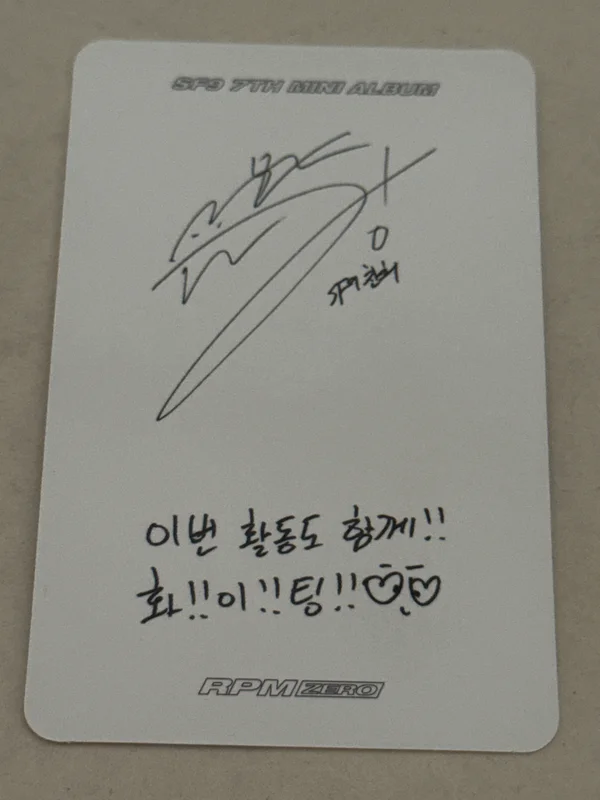 SF9 7TH MINI ALBUM
SF9 찬희
이번 활동도 함께!!
화!!이!!팅!!♡♡
RPM ZERO